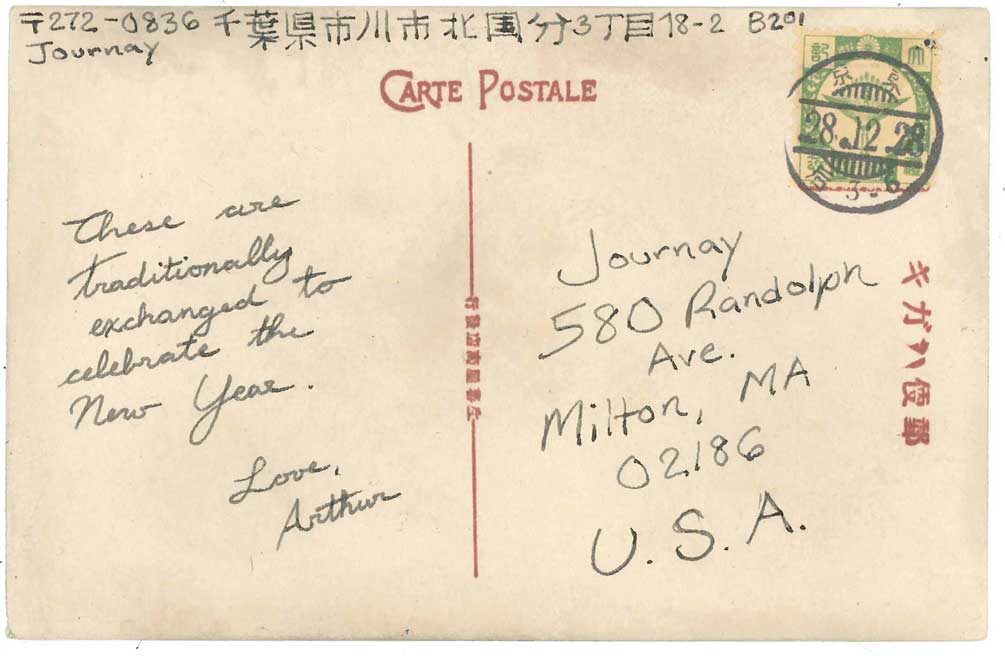 〒272-0836 千葉県市川市北国分3丁目18-2 B201
Journay
CARTE POSTALE
28.12.28
3-6
These are
traditionally
exchanged to
celebrate the
New Year.
Love,
Arthur
Journay
580 Randolph
Ave.
Milton, MA
02186
U.S.A.
郵便ハガキ